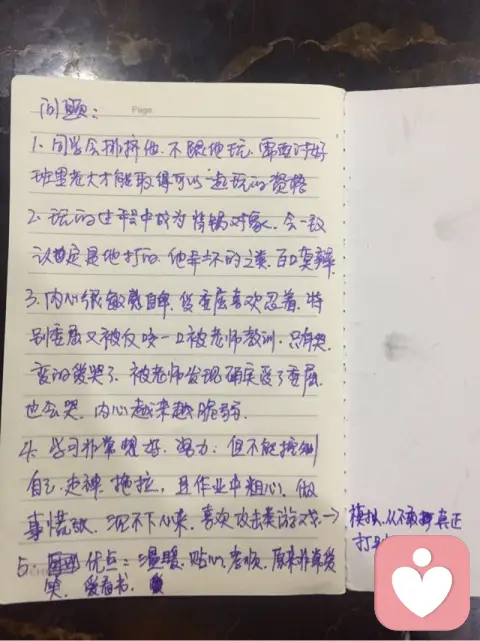 问题:
Page
1、同学会排挤他.不跟他玩.需要讨好
班里老大才能取得可以一起玩的资格
2、玩的过程中成为背锅对象.会一致
认定是他打的.他弄坏的之类.百口莫辩.
3、内心很敏感自卑.受委屈喜欢忍着.特
别委屈又被反咬一口被老师教训.只有哭.
变的爱哭了.被老师发现确实受了委屈.
也会哭.内心越来越脆弱.
4、学习非常想好.努力.但不能控制
自己.走神.拖拉.且作业中粗心.做
事慌张.沉不下心来.喜欢攻击类游戏→模拟.从不敢真正
打
5、优点:温暖.贴心.孝顺.原来非常爱
笑.爱看书.